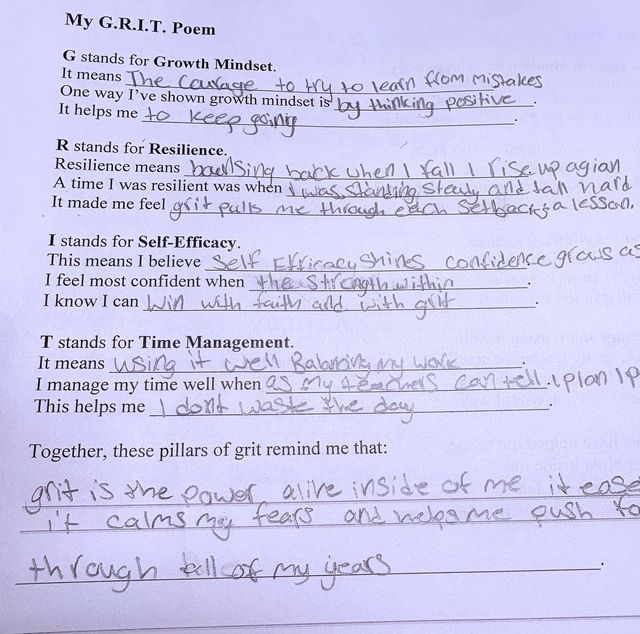 My G.R.I.T. Poem
G stands for Growth Mindset.
It means The Courage to try to learn from mistakes
One way I've shown growth mindset is by thinking positive.
It helps me to keep going.
R stands for Resilience.
Resilience means back when I fall I rise up agian
A time I was resilient was when I was standing steady and tall hard
It made me feel grit pulls me through each setback a lesson.
I stands for Self-Efficacy.
This means I believe Self Efficacy shines confidence grows as
I feel most confident when the strength within.
I know I can win with faith and with grit.
T stands for Time Management.
It means using it well Balancing my work.
I manage my time well when as my teachers can tell. I plan I p
This helps me I dont waste the day.
Together, these pillars of grit remind me that:
grit is the power alive inside of me it ease
it calms my fears and helps me push to
through all of my years.